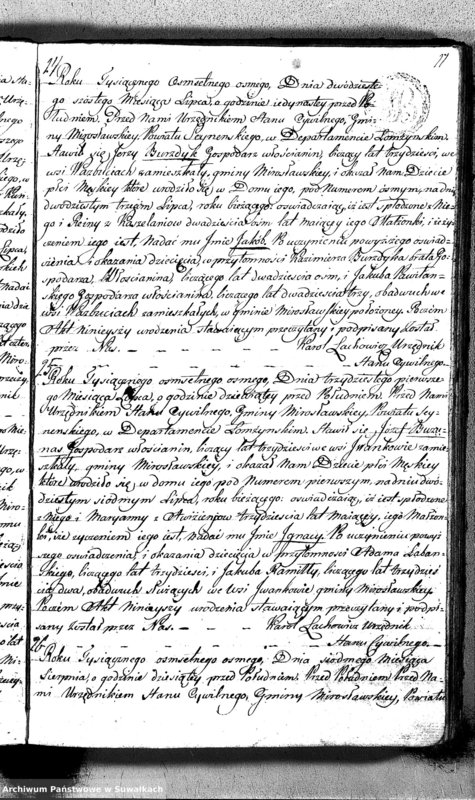 77
24
Roku Tysiącznego Osmsetnego osmego, Dnia dwódzieste-
go szóstego Miesiąca Lipca, o godzinie iedynastey przed Po-
łudniem. Przed Nami Urzędnikiem Stanu Cywilnego, Gmi-
ny Mirosławskiey, Powiatu Seynenskiego, w Departamencie Łomżynskim,
Stawił się Jerzy Burdzyk Gospodarz włościanin, liczący lat trzydzieści, we
wsi Wazbuciach zamieszkały, gminy Mirosławskiey, i okazał Nam Dziecie
płci Męskiey które urodziło się w Domu iego, pod Numerem ósmym, na dniu
dwódziestym trzecim Lipca, roku bieżącego: oświadczaiąc, iż iest spłodzone z Nie-
go i Reiny z Kaszelaniow dwadzieścia ósm lat maiący iego Małżonki; i że ży-
czeniem iego iest, Nadać mu Jmie Jakob. Po uczynieniu powyższego oświad-
czenia i okazania dziecięcia, w przytomności Kazimierza Burdzyka brata Go-
spodarza, Włościanina, liczącego lat dwadzieścia ośm, i Jakuba
skiego Gospodarza włościanina, liczącego lat dwadzieścia trzy, obadwuch we
wsi Wazbuciach zamieszkałych, w gminie Mirosławskiey położoney. Poczem
Akt Ninieyszy urodzenia stawaiącym przeczytany i podpisany został
przez Nas. Karol Lachowicz Urzędnik
Stanu Cywilnego.
25
Roku Tysiącznego osmsetnego osmego, Dnia trzydziestego pierwsze-
go Miesiąca Lipca, o godzinie dziewiątey przed Południem Przed Nami
Urzędnikiem Stanu Cywilnego, Gminy Mirosławskiey, Powiatu Sey-
nenskiego, w Departamencie Łomżynskim. Stawił się Józef
Gospodarz włościanin, liczący lat trzydzieści we wsi Jwankowie zamie-
szkały, gminy Mirosławskiey, i okazał Nam Dziecie płci Męskiey
które urodziło się, w domu iego pod Numerem pierwszym, na dniu dwó-
dziestym siódmym Lipca, roku bieżącego: oświadczaiąc, iż iest spłodzone
z Niego i Maryanny z trzydzieścia lat maiący, iego Małżon-
ki, i że życzeniem iego iest, nadać mu Jmie Jgnacy. Po uczynieniu powyż-
szego oświadczenia, i okazania dziecięcia w przytomności Adama Łaban-
skiego, liczącego lat trzydzieści, i Jakuba Ramitty, liczącego lat trzydzie-
ści dwa, obadwuch we wsi Jwankowie gminy Mirosławskiey
Poczem Akt Ninieyszy urodzenia stawaiącym przeczytany i podpi-
sany został przez Nas. Karol Lachowicz Urzędnik
Stanu Cywilnego.
26
Roku Tysiącznego osmsetnego osmego, Dnia siódmego Miesiąca
Sierpnia, o godzinie dziesiątey, przed Południem Przed Południem Przed Na-
mi Urzędnikiem Stanu Cywilnego, Gminy Mirosławskiey, Powiatu
Archiwum Państwowe w Suwałkach